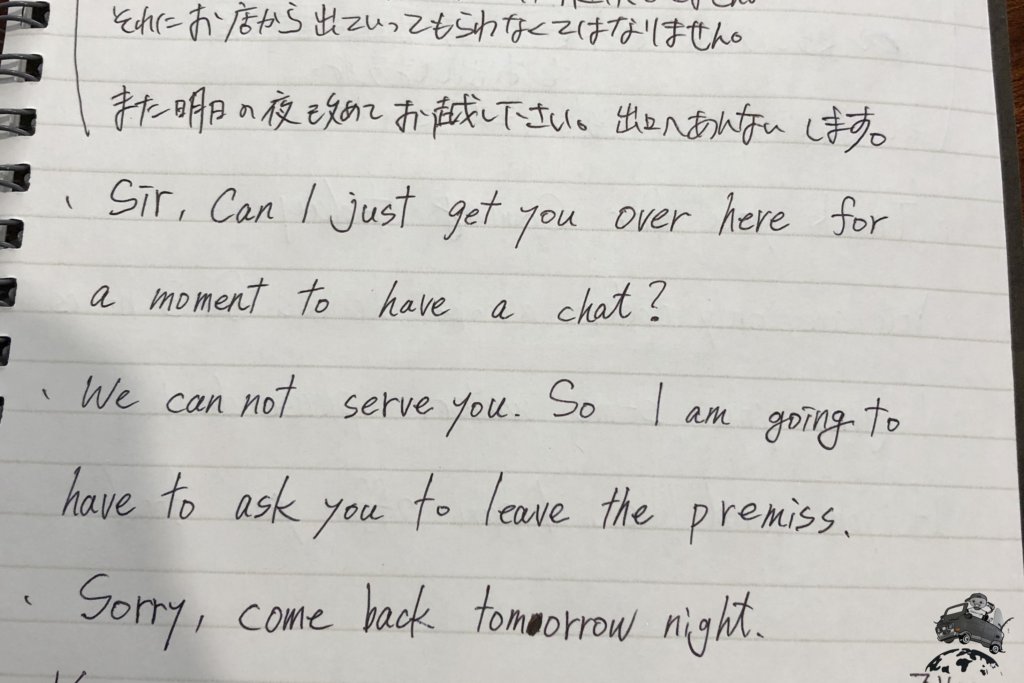 それにお店から出ていってもらわなくてはなりません。
また明日の夜改めてお越し下さい。出口へあんないします。
、Sir, Can I just get you over here for
a moment to have a chat?
、We can not serve you. So I am going to
have to ask you to leave the premiss.
、Sorry, come back tomorrow night.